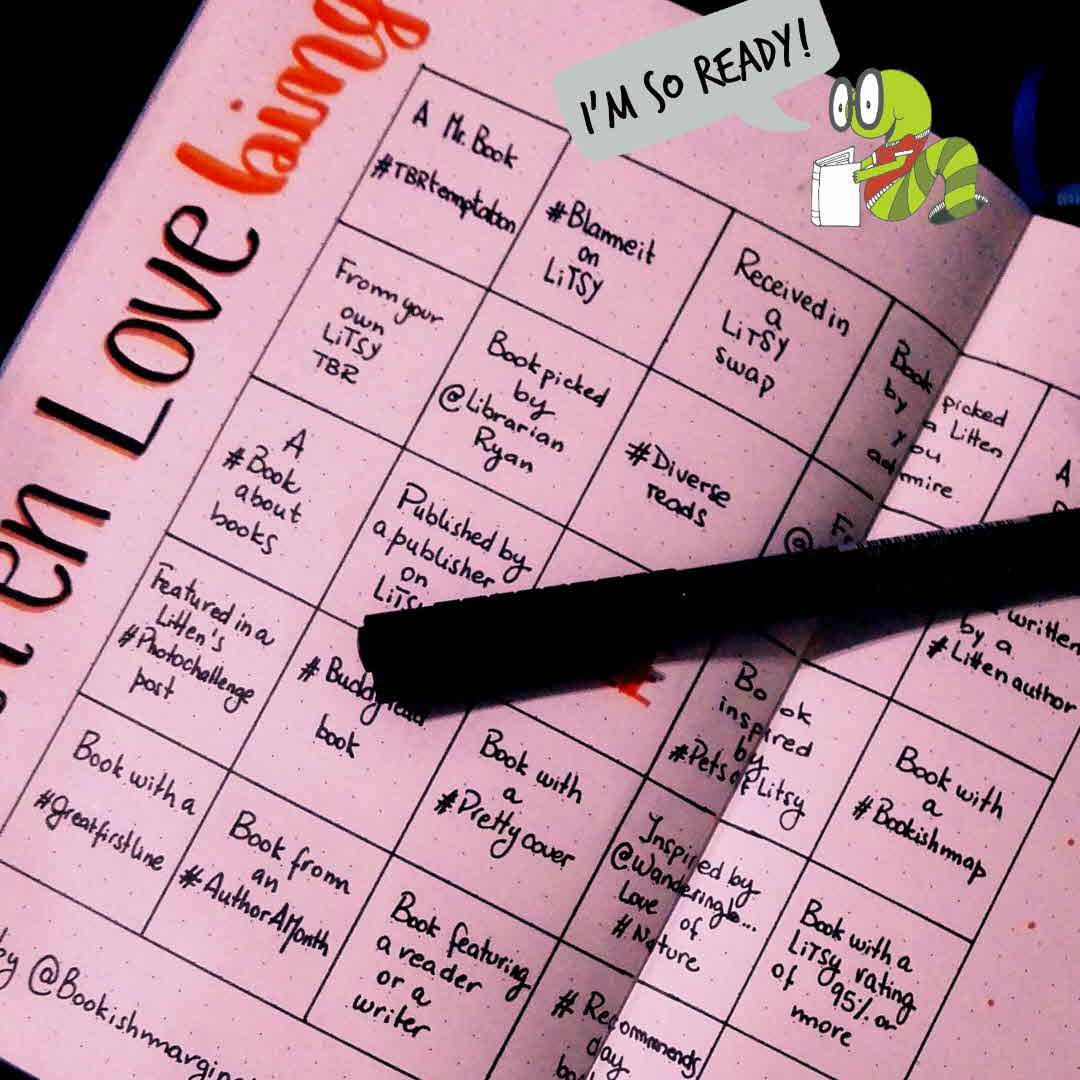 I'M SO READY!
Love bing
A Mr. Book
#TBRtemptation
#Blameit
on
LiTSy
Received in
a
LiTSy
swap
Book picked
by a Litten
you
admire
A
From your
own
LiTSy
TBR
Book picked
by
@Librarian
Ryan
#Diverse
reads
@
A
#Book
about
books
Published by
a publisher
on
written
by a
#Littenauthor
Featured in a
Litten's
#Photochallenge
post
#Buddyread
book
Book
inspired
by
#Pets of Litsy
Book with a
#greatfirstline
Book from
an
#AuthorAMonth
Book with
a
#Prettycover
Inspired by
Love
of
#Nature
Book with
a
#Bookishmap
Book featuring
a reader
or a
writer
#Recommends
day
Book with a
LiTSy rating
of 95% or
more
by